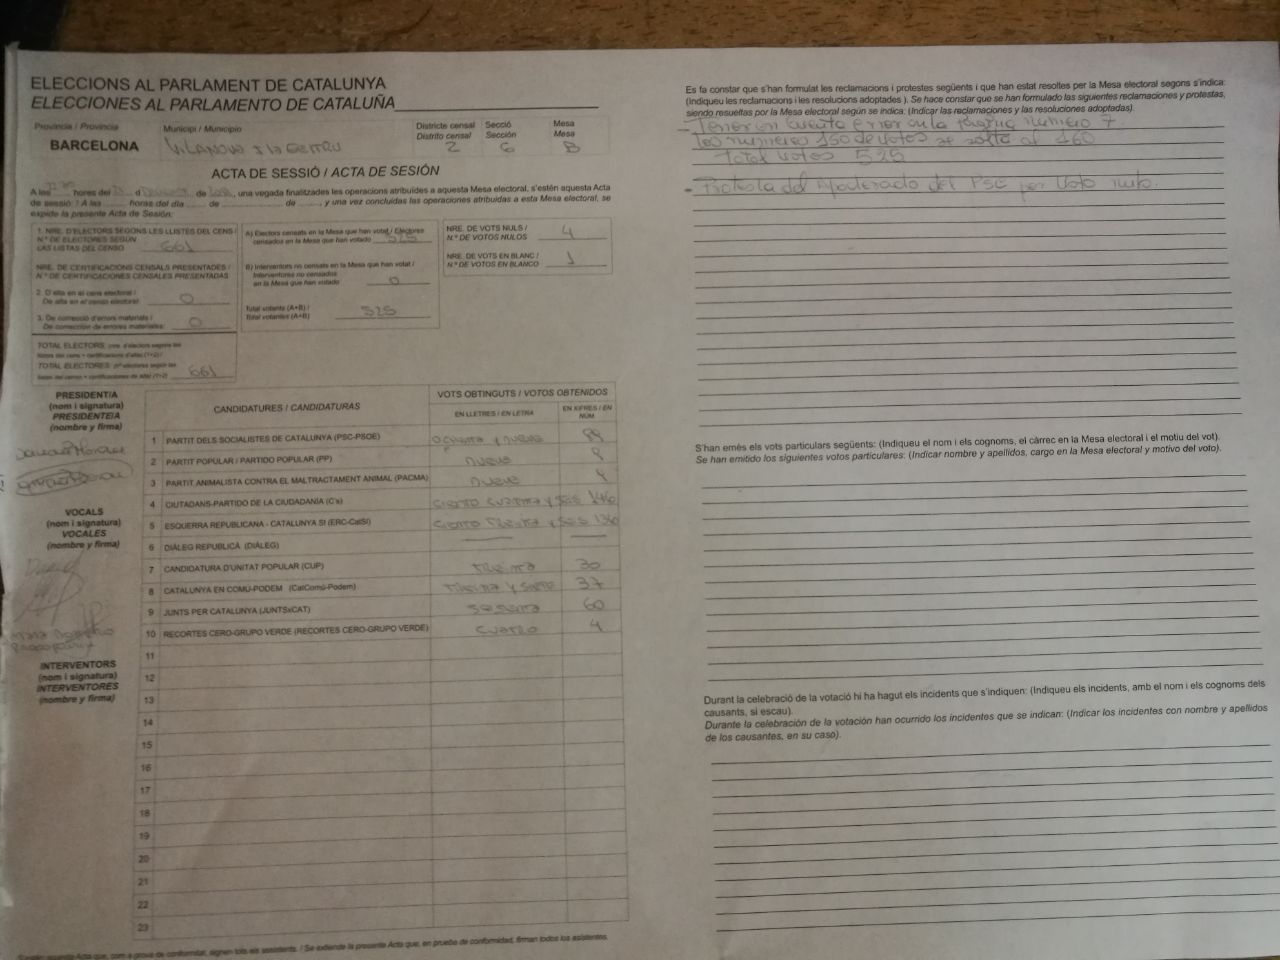 ELECCIONS AL PARLAMENT DE CATALUNYA
ELECCIONES AL PARLAMENTO DE CATALUÑA
Província / Provincia
BARCELONA
Municipi / Municipio
Vilanova i la Geltru
Districte censal
Distrito censal
2
Secció
Sección
6
Mesa
Mesa
B
ACTA DE SESSIÓ / ACTA DE SESIÓN
A les hores del d de , una vegada finalitzades les operacions atribuïdes a aquesta Mesa electoral, s'estén aquesta Acta
de sessió. / A las horas del día de de , y una vez concluidas las operaciones atribuidas a esta Mesa electoral, se
expide la presente Acta de Sesión:
1. NRE. D'ELECTORS SEGONS LES LLISTES DEL CENS /
N.º DE ELECTORES SEGÚN
LAS LISTAS DEL CENSO 661
NRE. DE CERTIFICACIONS CENSALS PRESENTADES /
N.º DE CERTIFICACIONES CENSALES PRESENTADAS
2. D'alta en el cens electoral /
De alta en el censo electoral 0
3. De correcció d'errors materials /
De corrección de errores materiales: 0
TOTAL ELECTORS:
TOTAL ELECTORES: 661
A) Electors censats en la Mesa que han votat / Electores
censados en la Mesa que han votado 525
B) Interventors no censats en la Mesa que han votat /
Interventores no censados
en la Mesa que han votado 0
Total votants (A+B) /
Total votantes (A+B) 525
NRE. DE VOTS NULS /
N.º DE VOTOS NULOS 4
NRE. DE VOTS EN BLANC /
N.º DE VOTOS EN BLANCO 1
PRESIDENT/A
(nom i signatura)
PRESIDENTE/A
(nombre y firma)
VOCALS
(nom i signatura)
VOCALES
(nombre y firma)
INTERVENTORS
(nom i signatura)
INTERVENTORES
(nombre y firma)
CANDIDATURES / CANDIDATURAS
VOTS OBTINGUTS / VOTOS OBTENIDOS
EN LLETRES / EN LETRA
EN XIFRES / EN NÚM
1 PARTIT DELS SOCIALISTES DE CATALUNYA (PSC-PSOE) ochenta y nueve 89
2 PARTIT POPULAR / PARTIDO POPULAR (PP) nueve 9
3 PARTIT ANIMALISTA CONTRA EL MALTRACTAMENT ANIMAL (PACMA) nueve 9
4 CIUTADANS-PARTIDO DE LA CIUDADANÍA (C's) ciento cuarenta y seis 146
5 ESQUERRA REPUBLICANA - CATALUNYA SÍ (ERC-CatSí) ciento treinta y seis 136
6 DIÀLEG REPUBLICÀ (DIÀLEG)
7 CANDIDATURA D'UNITAT POPULAR (CUP) treinta 30
8 CATALUNYA EN COMÚ-PODEM (CatComú-Podem) treinta y siete 37
9 JUNTS PER CATALUNYA (JUNTSxCAT) sesenta 60
10 RECORTES CERO-GRUPO VERDE (RECORTES CERO-GRUPO VERDE) cuatro 4
11
12
13
14
15
16
17
18
19
20
21
22
23
S'estén aquesta Acta que, com a prova de conformitat, signen tots els assistents. / Se extiende la presente Acta que, en prueba de conformidad, firman todos los asistentes.
Es fa constar que s'han formulat les reclamacions i protestes següents i que han estat resoltes per la Mesa electoral segons s'indica:
(Indiqueu les reclamacions i les resolucions adoptades ). Se hace constar que se han formulado las siguientes reclamaciones y protestas,
siendo resueltas por la Mesa electoral según se indica: (Indicar las reclamaciones y las resoluciones adoptadas).
- Tener en cuenta error en la página número 7
los números 150 de votos se salta al 160
Total votos 525
- Protesta del apoderado del PSC por voto nulo.
S'han emès els vots particulars següents: (Indiqueu el nom i els cognoms, el càrrec en la Mesa electoral i el motiu del vot).
Se han emitido los siguientes votos particulares: (Indicar nombre y apellidos, cargo en la Mesa electoral y motivo del voto).
Durant la celebració de la votació hi ha hagut els incidents que s'indiquen: (Indiqueu els incidents, amb el nom i els cognoms dels
causants, si escau).
Durante la celebración de la votación han ocurrido los incidentes que se indican: (Indicar los incidentes con nombre y apellidos
de los causantes, en su caso).